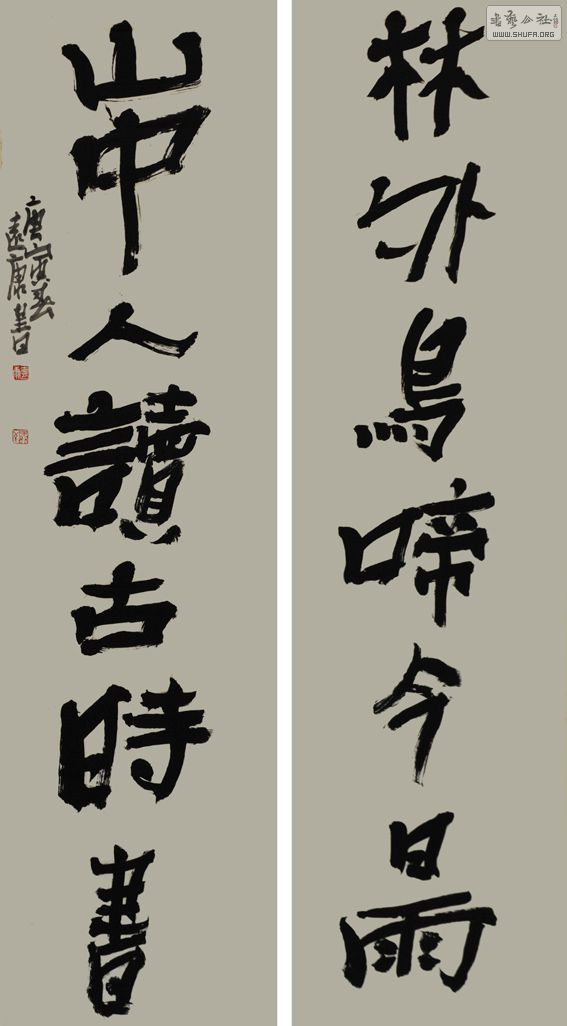 林外鳥啼今日雨
山中人讀古時書
庚寅春
遠康書
書藝公社
WWW.SHUFA.ORG